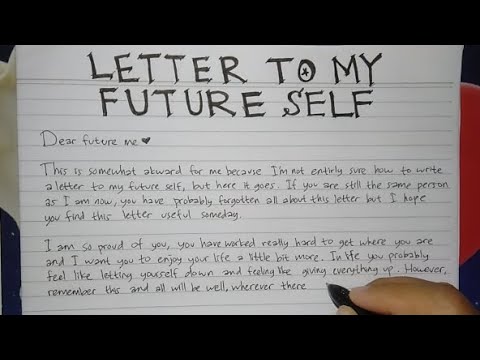 LETTER TO MY
FUTURE SELF
Dear future me ♥
This is somewhat akward for me because I'm not entirly sure how to write
a letter to my future self, but here it goes. If you are still the same person
as I am now, you have probably forgotten all about this letter but I hope
you find this letter useful someday.
I am so proud of you, you have worked really hard to get where you are
and I want you to enjoy your life a little bit more. In life you probably
feel like letting yourself down and feeling like giving everything up. However,
remember this and all will be well, wherever there